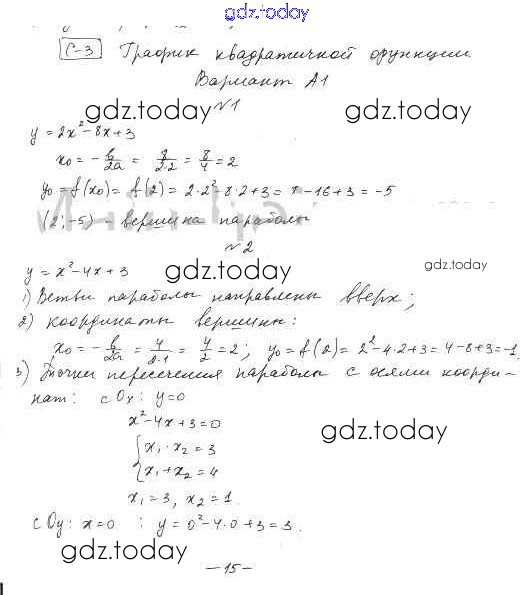 gdz.today
С-3 График квадратичной функции
Вариант А1
gdz.today
gdz.today
№1
y = 2x² - 8x + 3
x₀ = -b/2a = 8/2·2 = 8/4 = 2
y₀ = f(x₀) = f(2) = 2·2² - 8·2 + 3 = 8 - 16 + 3 = -5
(2; -5) - вершина параболы
№2
y = x² - 4x + 3
gdz.today
gdz.today
1) Ветви параболы направлены вверх;
2) координаты вершины:
x₀ = -b/2a = 4/2·1 = 4/2 = 2; y₀ = f(2) = 2² - 4·2 + 3 = 4 - 8 + 3 = -1
3) Точки пересечения параболы с осями коорди-
нат: с Ox: y = 0
x² - 4x + 3 = 0
{ x₁ · x₂ = 3
x₁ + x₂ = 4
gdz.today
x₁ = 3, x₂ = 1.
с Oy: x = 0 : y = 0² - 4·0 + 3 = 3.
gdz.today
gdz.today
- 15 -